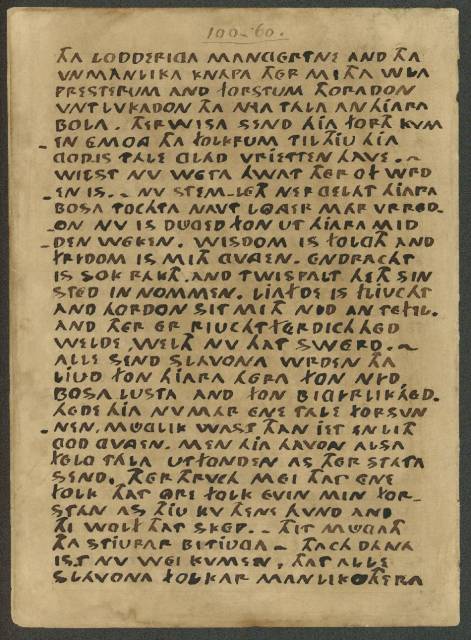 100-60.
THA LODDERIGA MANGERTNE AND THA
VNMANLIKA KNAPA THER MITHA WLA
PRESTERUM AND FORSTUM HORADON
VNTLVKADON THA NYA TALA AN HIARA
BOLA. THERWISA SEND HIA FORTH KVM
EN EMONG THA FOLKRUM TIL THIU HIA
GODIS TALE GLAD VRIETTEN HAVE.~
WILST NV WETA HWAT THER OF WRD
EN IS.~ NV STEM-LETH NER GELAT HIARA
BOSA TOCHTA NAVT LONGER MAR VRRED-
ON NV IS DUGED FON UT HIARA MID
DEN WEKEN. WISDOM IS FOLGTH AND
FRYDOM IS MITH GVNGEN. ENDRACHT
IS SOK RAKTH. AND TWISPALT HETH SIN
STED IN NOMMEN. LIAFDE IS FLIUCHT
AND HORDOM SIT MITH NYD AN TEFEL.
AND THER ER RIUCHTFERDICHHED
WELDE WELTH NV THAT SWERD.~
ALLE SEND SLAVONA WRDEN THA
LIUD FON HIARA HERA FON NYD,
BOSA LUSTA AND FON BIGYRLIKHED.
HEDE HIA NVMAR ENE TALE FORSVN
NEN, MUGLIK WAST THAN IET EN LITH
GOD GVNGEN. MEN HIA HAVON ALSA
FELO TALA UTFONDEN AS THER STATA
SEND. THERTHRVCH MEI THAT ENE
FOLK THAT ORE FOLK EVIN MIN FOR-
STAN AS THIU KV THENE HVND AND
THI WOLF THAT SKEP.~ THIT MUGATH
THA STIURAR BITIUGA~ THACH DANA
IST NV WEI KVMEN, THAT ALLE
SLAVONA FOLKAR MANLIKORTHERA